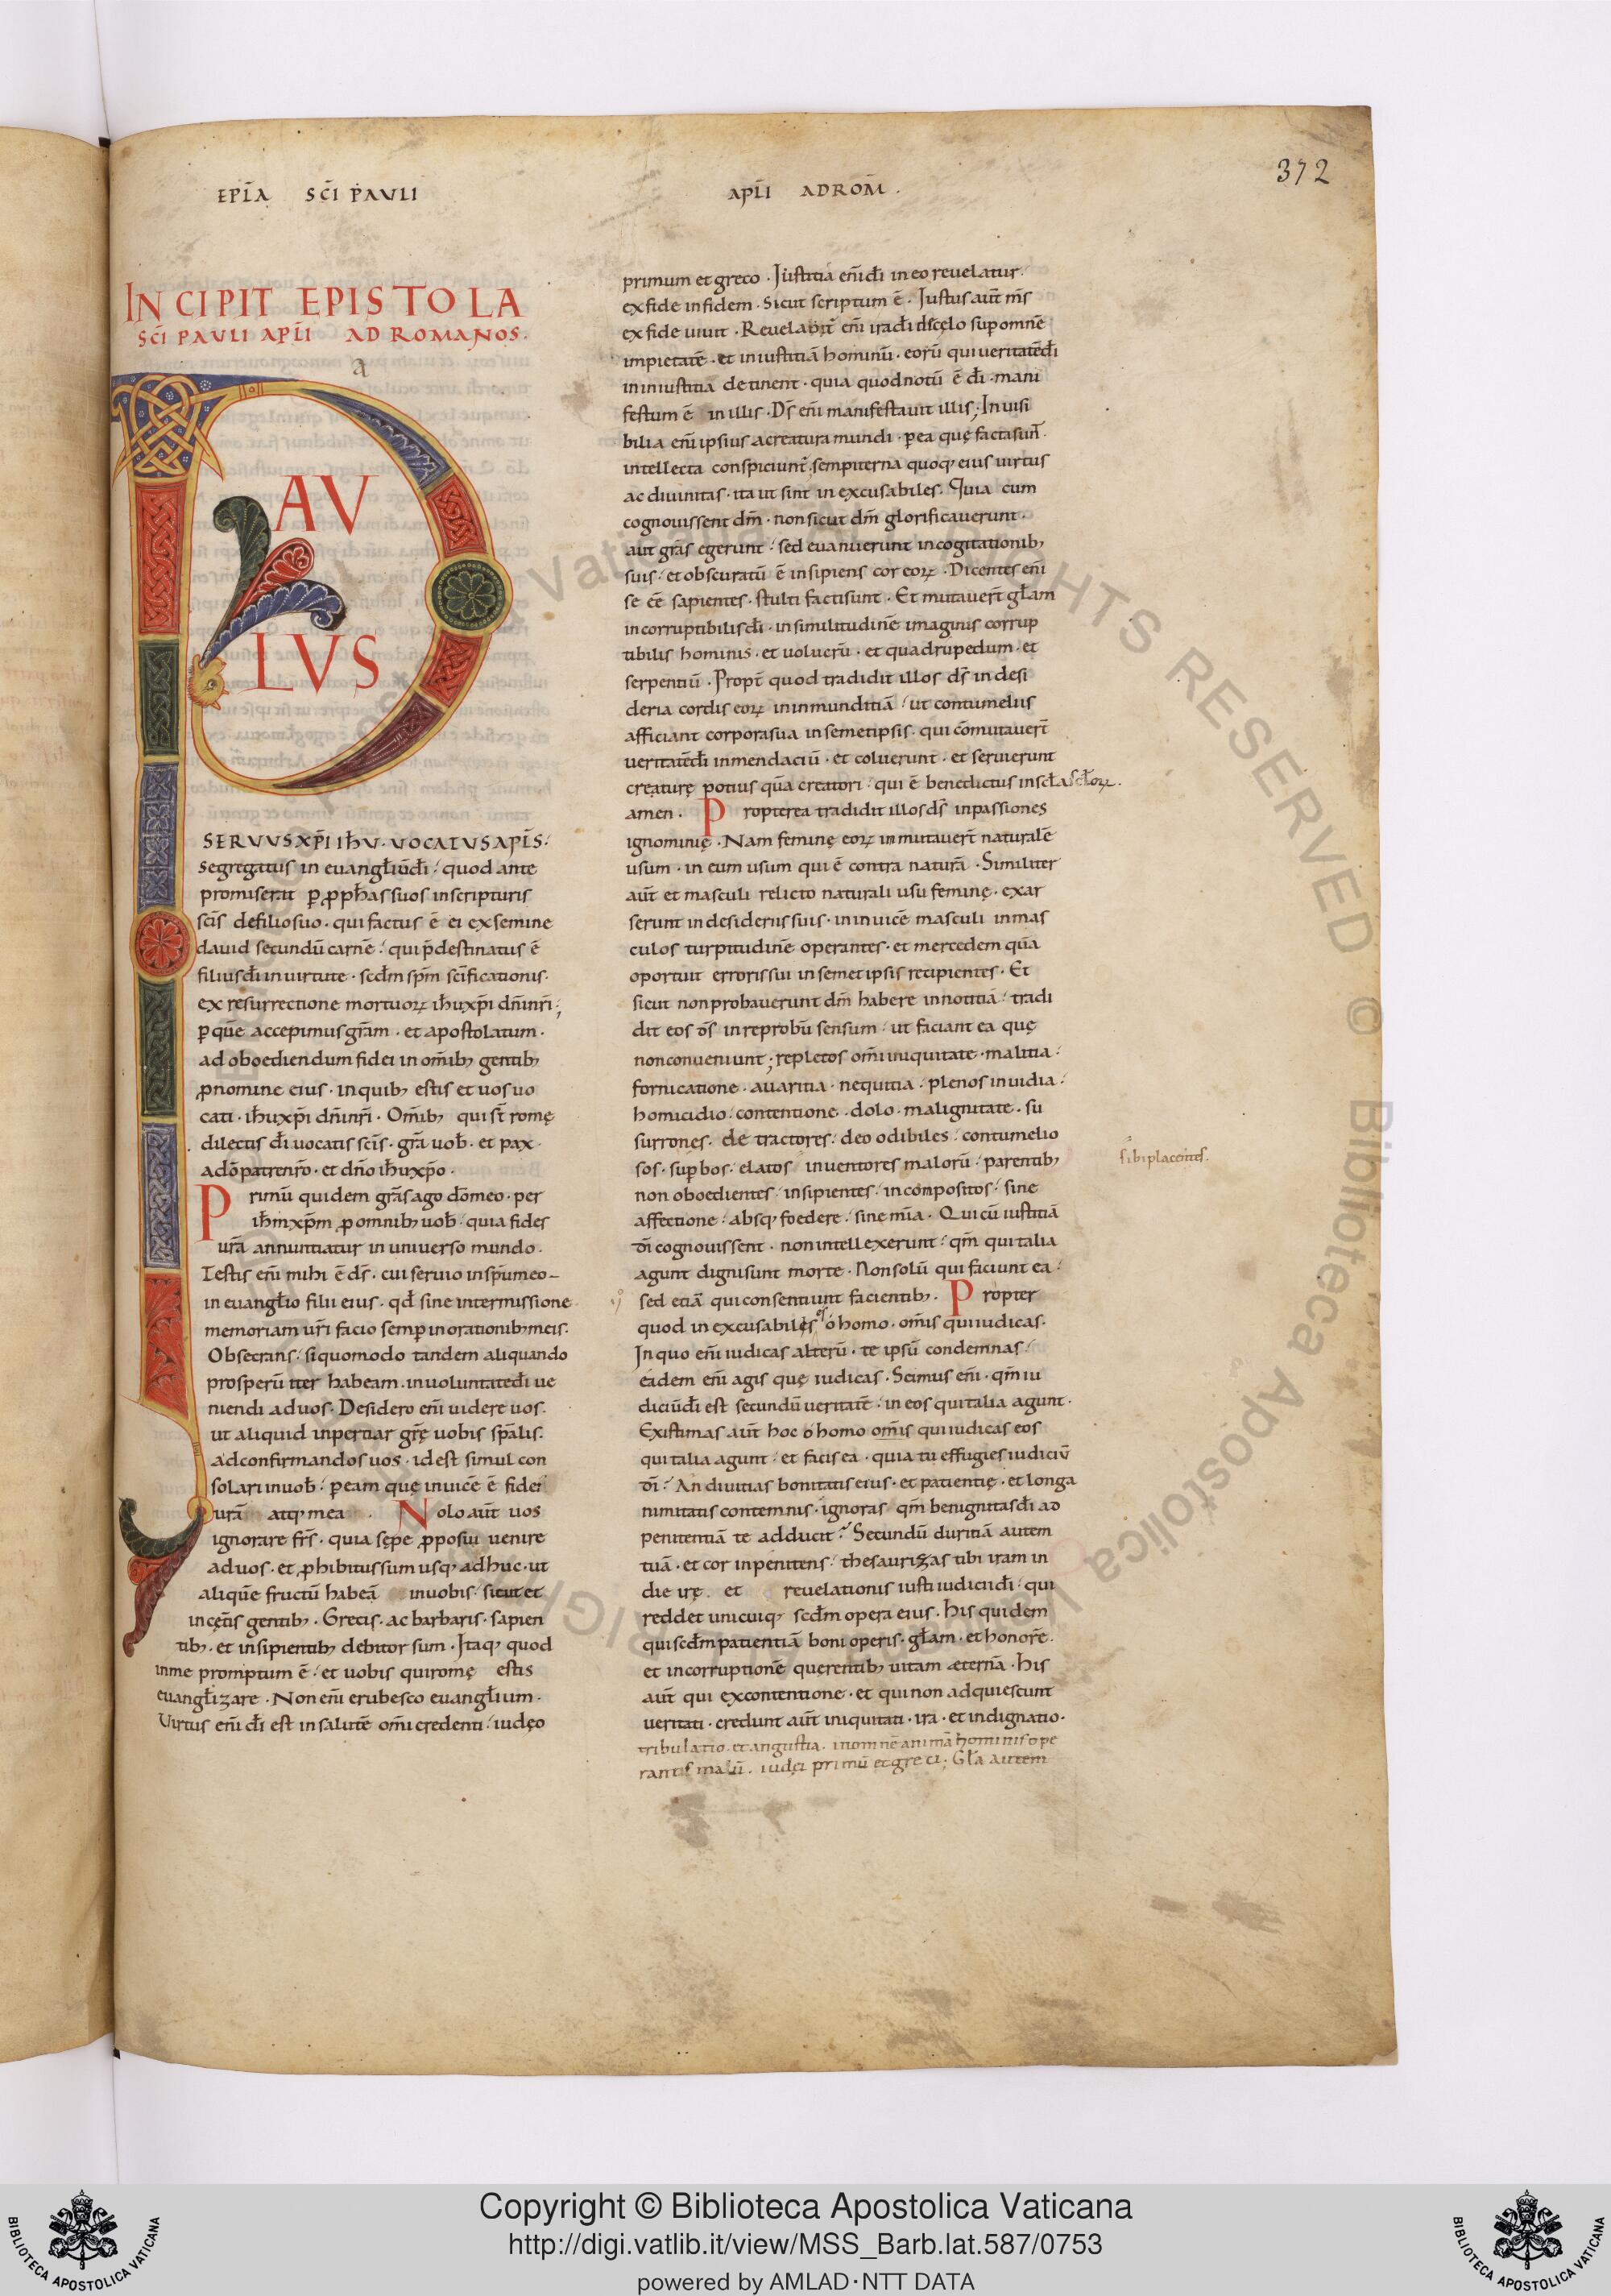 372
EPL̄A SC̄I PAVLI
APL̄I ADROM̄.
INCIPIT EPISTOLA
SC̄I PAVLI APL̄I AD ROMANOS.
a
PAV
LVS
SERVUS XP̄I IH̄V · VOCATUS APL̄S:
segregatus in euangl̄iūdī: quod ante
promiserat ꝑ ꝓph̄as suos inscripturis
scīs defiliosuo · qui factus ē ei exsemine
dauid secundū carnē: qui p̄destinatus ē
filiusdīinuirtute · scdm̄ spm̄ scīficationis ·
ex resurrectione mortuoꝝ ih̄uxp̄i dn̄inrī;
ꝑ quē accepimusgrām · et apostolatum ·
ad oboediendum fidei in om̄ib; gentib;
ꝓnomine eius · inquib; estis et uos uo
cati · ih̄uxp̄i dn̄inrī · Om̄ib; qui st̄ romę
dilectis dī uocatis scīs · grā uob̄ · et pax ·
adō patrenrō · et dn̄o ih̄uxp̄o ·
Primū quidem grās ago dōmeo · per
ih̄mxp̄m ꝓomnib; uob̄: quia fides
urā annuntiatur in uniuerso mundo ·
Testis enī mihi ē ds̄ · cui seruio inspūmeo
in euangl̄io filii eius · qd̄ sine intermissione
memoriam urī facio semꝑ inorationib; meis ·
Obsecrans: siquomodo tandem aliquando
prosperū iter habeam · inuoluntatedī ue
niendi aduos · Desidero enī uidere uos ·
ut aliquid inpertiar grę̄ uobis spālis:
adconfirmandos uos · idest simul con
solari inuob̄: ꝑeam quę inuicē ē fidei
urā atq; mea · Nolo aūt uos
ignorare frs̄ · quia sępe ꝓposui uenire
aduos · et ꝓhibitus sum usq; adhuc · ut
aliquē fructū habeā inuobis: sicut et
incęt̄is gentib; · Grecis · ac barbaris · sapien
tib; · et insipientib; debitor sum · Itaq; quod
inme promptum ē: et uobis quiromę estis
euangl̄izare · Non enī erubesco euangl̄ium ·
Virtus enī dī est insalutē om̄i credenti: iudęo
primum et greco · Justitia enīdī in eo reuelatur ·
exfide infidem · Sicut scriptum ē · Justus aūt m̄s
ex fide uiuit · Reuelatur̄ enī iradī dscęlo suꝑomnē
impietatē · et iniustitiā hominū · eorū quiueritatēdī
ininiustitia detinent · quia quodnotū ē dī · mani
festum ē in illis · Ds̄ enī manifestauit illis; Inuisi
bilia enīipsius acreatura mundi · ꝑea quę factasun̄t
intellecta conspiciunt̄ · sempiterna quoq; eius uirtus
ac diuinitas · ita ut sint inexcusabiles · Quia cum
cognouissent dm̄ · nonsicut dm̄ glorificauerunt ·
aut grās egerunt: sed euanuerunt incogitationib;
suis: et obscuratū ē insipiens cor eoꝝ · Dicentes enī
se eē sapientes · stulti factisunt · Et mutauer̄t gl̄am
incorruptibilisdī · insimilitudinē imaginis corrup
tibilis hominis · et uolucrū · et quadrupedum · et
serpentiū · Propt̄ quod tradidit illos ds̄ in desi
deria cordis eoꝝ ininmunditiā: ut contumeliis
afficiant corporasua insemetipsis · qui cōmutauer̄t
ueritatēdī inmendaciū · et coluerunt · et seruierunt
creaturę potius quā creatori: qui ē benedictus inscl̄ascl̄oꝝ ·
amen · Propterea tradidit illosds̄ inpassiones
ignominię · Nam feminę eoꝝ inmutauer̄t naturalē
usum · in eum usum qui ē contra naturā · Similiter
aūt et masculi relicto naturali usu feminę · exar
serunt indesideriis suis · ininuicē masculi inmas
culos turpitudinē operantes · et mercedem quā
oportuit errorissui insemetipsis recipientes · Et
sicut nonprobauerunt dm̄ habere innotitiā: tradi
dit eos ds̄ inreprobū sensum: ut faciant ea quę
nonconueniunt; repletos om̄iiniquitate · malitia:
fornicatione · auaritia · nequitia: plenos inuidia:
homicidio: contentione · dolo · malignitate · su
surrones · detractores: deo odibiles: contumelio
sos · suꝑbos: elatos inuentores malorū: parentib;
sibiplacentes.
non oboedientes: insipientes: incompositos: sine
affectione: absq; foedere: sine mīa · Qui cū iustitiā
dī cognouissent · nonintellexerunt: qm̄ quitalia
agunt dignisunt morte · Nonsolū qui faciunt ea:
sed etiā quiconsentiunt facientib; · Propter
quod inexcusabiles es o homo · om̄is quiiudicas ·
Inquo enī iudicas alterū · te ipsū condemnas:
eadem enī agis quę iudicas · Scimus enī · qm̄ iu
diciūdī est secundū ueritatē: in eos quitalia agunt ·
Existimas aūt hoc o homo om̄is quiiudicas eos
quitalia agunt: et facis ea · quia tu effugies iudiciū
dī: An diuitias bonitatis eius · et patientię · et longa
nimitatis contemnis · ignoras qm̄ benignitasdī ad
penitentiā te adducit? Secundū duritiā autem
tuā · et cor inpenitens: thesaurizas tibi iram in
die irę · et reuelationis iusti iudiciidī: qui
reddet unicuiq; scdm̄ opera eius · His quidem
quiscdm̄patientiā boni operis · gl̄am · et honorē ·
et incorruptionē querentib; uitam æternā · His
aūt qui excontentione · et quinon adquiescunt
ueritati · credunt aūt iniquitati · ira · et indignatio ·
tribulatio · et angustia · inomnē animā hominis ope
rantis malū · iudęi primū et greci; Gl̄a autem
Copyright © Biblioteca Apostolica Vaticana
http://digi.vatlib.it/view/MSS_Barb.lat.587/0753
powered by AMLAD·NTT DATA
BIBLIOTECA APOSTOLICA VATICANA
BIBLIOTECA APOSTOLICA VATICANA